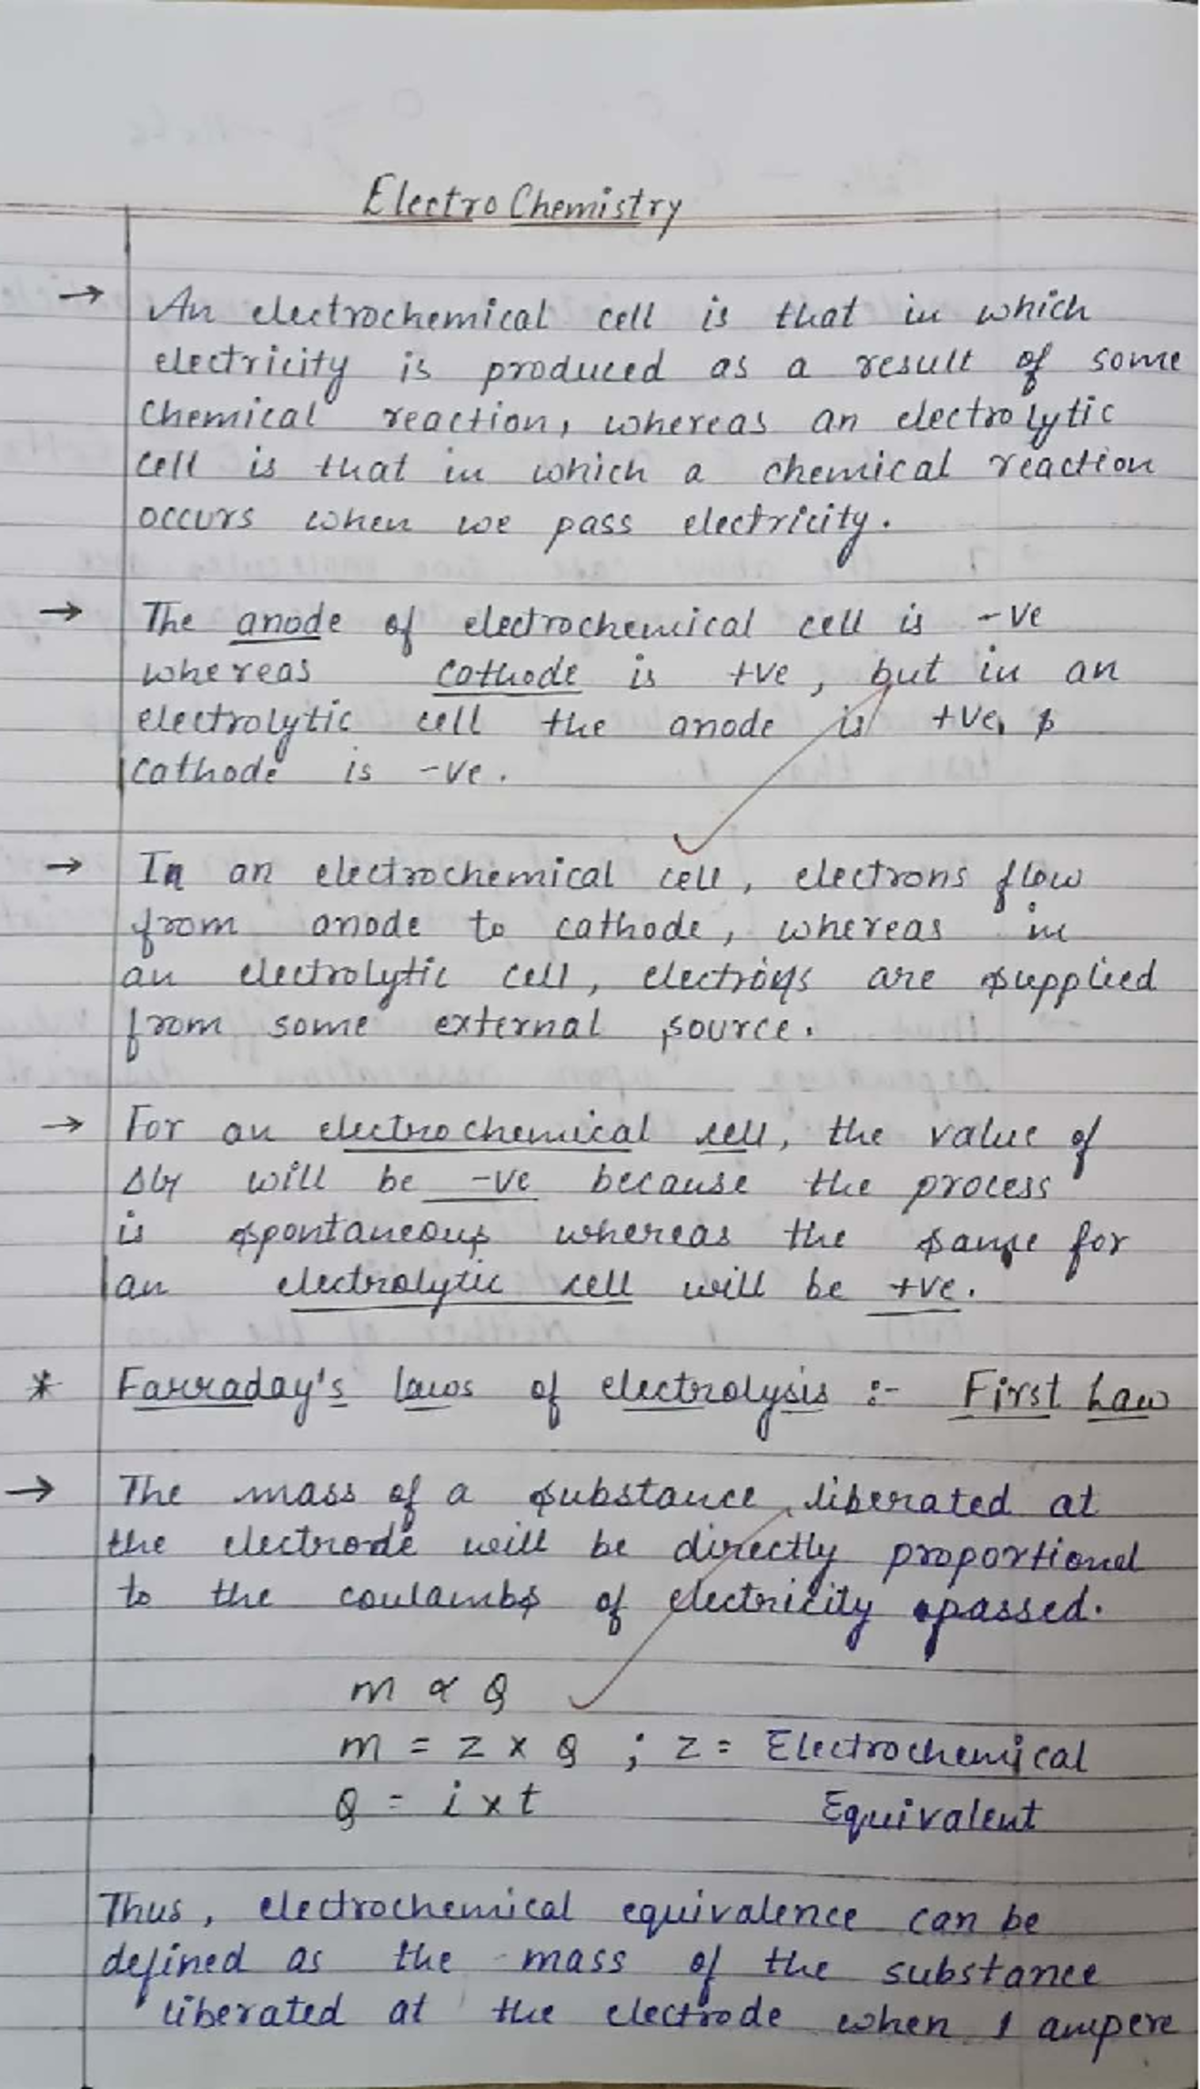 Electro Chemistry
→ An electrochemical cell is that in which
electricity is produced as a result of some
chemical reaction, whereas an electrolytic
cell is that in which a chemical reaction
occurs when we pass electricity.
→ The anode of electrochemical cell is -ve
whereas cathode is +ve, but in an
electrolytic cell the anode is +ve, $
cathode is -ve.
→ In an electrochemical cell, electrons flow
from anode to cathode, whereas in
an electrolytic cell, electrons are supplied
from some external source.
→ For an electrochemical cell, the value of
ΔG will be -ve because the process
is spontaneous whereas the same for
an electrolytic cell will be +ve.
* Farraday's laws of electrolysis :- First Law
→ The mass of a substance liberated at
the electrode will be directly proportional
to the coulambs of electricity passed.
m ∝ Q
m = z x Q ; z = Electrochemical
Q = i x t Equivalent
Thus, electrochemical equivalence can be
defined as the mass of the substance
liberated at the electrode when 1 ampere